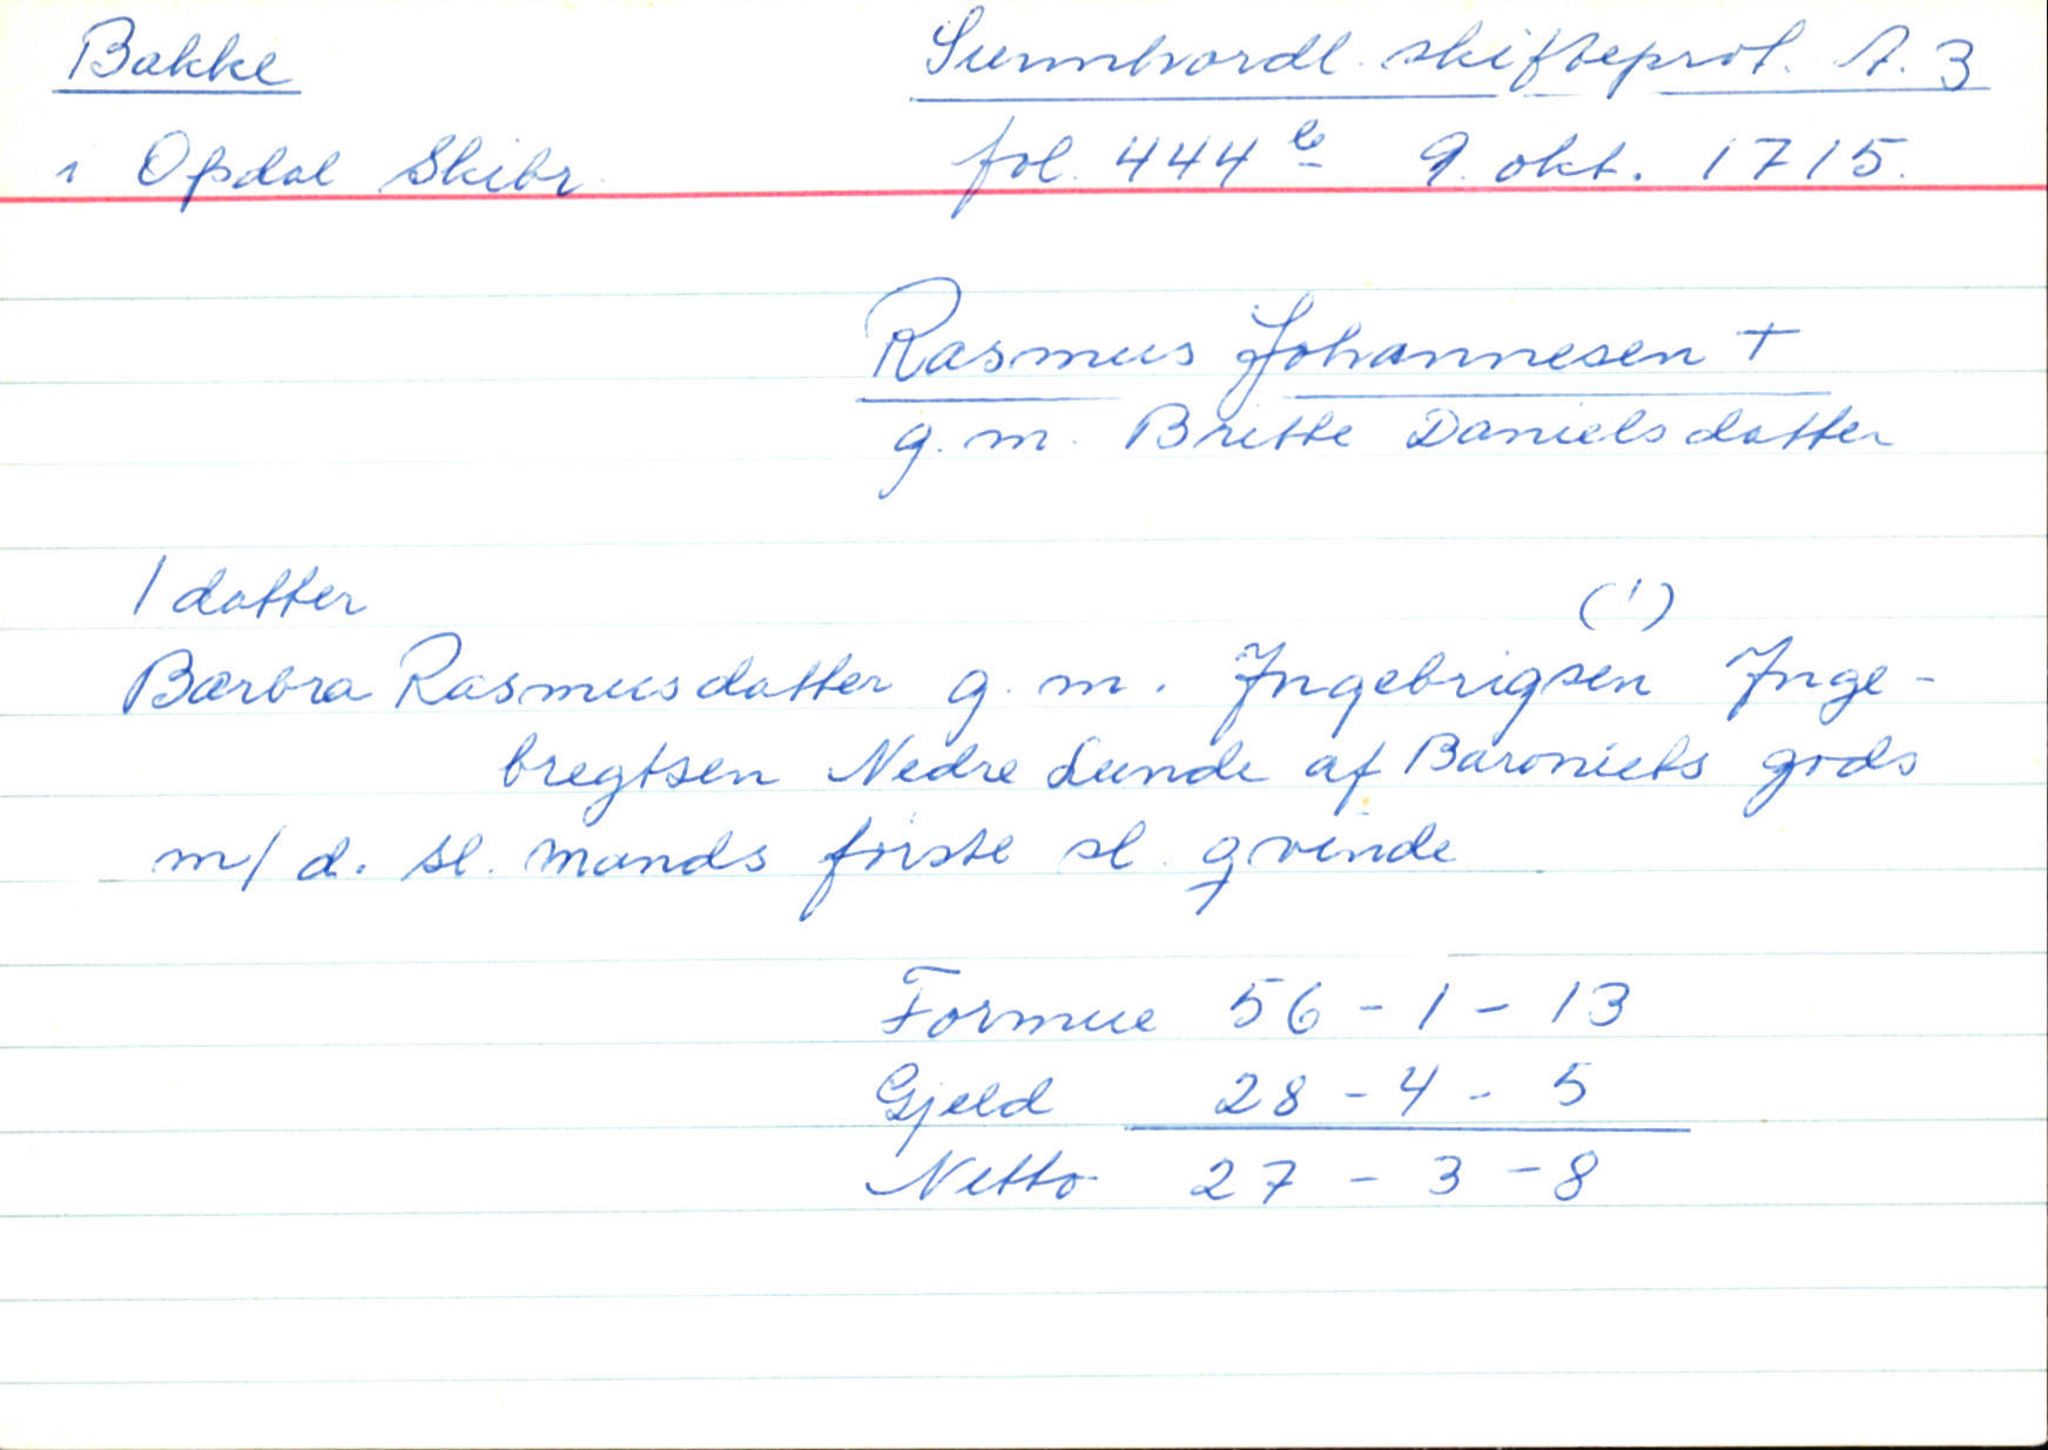 Bakke
Sunnhordl. skifteprot. A. 3
i Opdal Skibr.
fol. 444 b 9. okt. 1715.
Rasmus Johannesen +
g. m. Britte Danielsdatter
1 datter
(!)
Barbra Rasmusdatter g. m. Ingebrigsen Inge-
bregtsen Nedre Lunde af Baroniets gods
m/ d. sl. mands første sl. qvinde
Formue 56 - 1 - 13
Gjeld 28 - 4 - 5
Netto 27 - 3 - 8